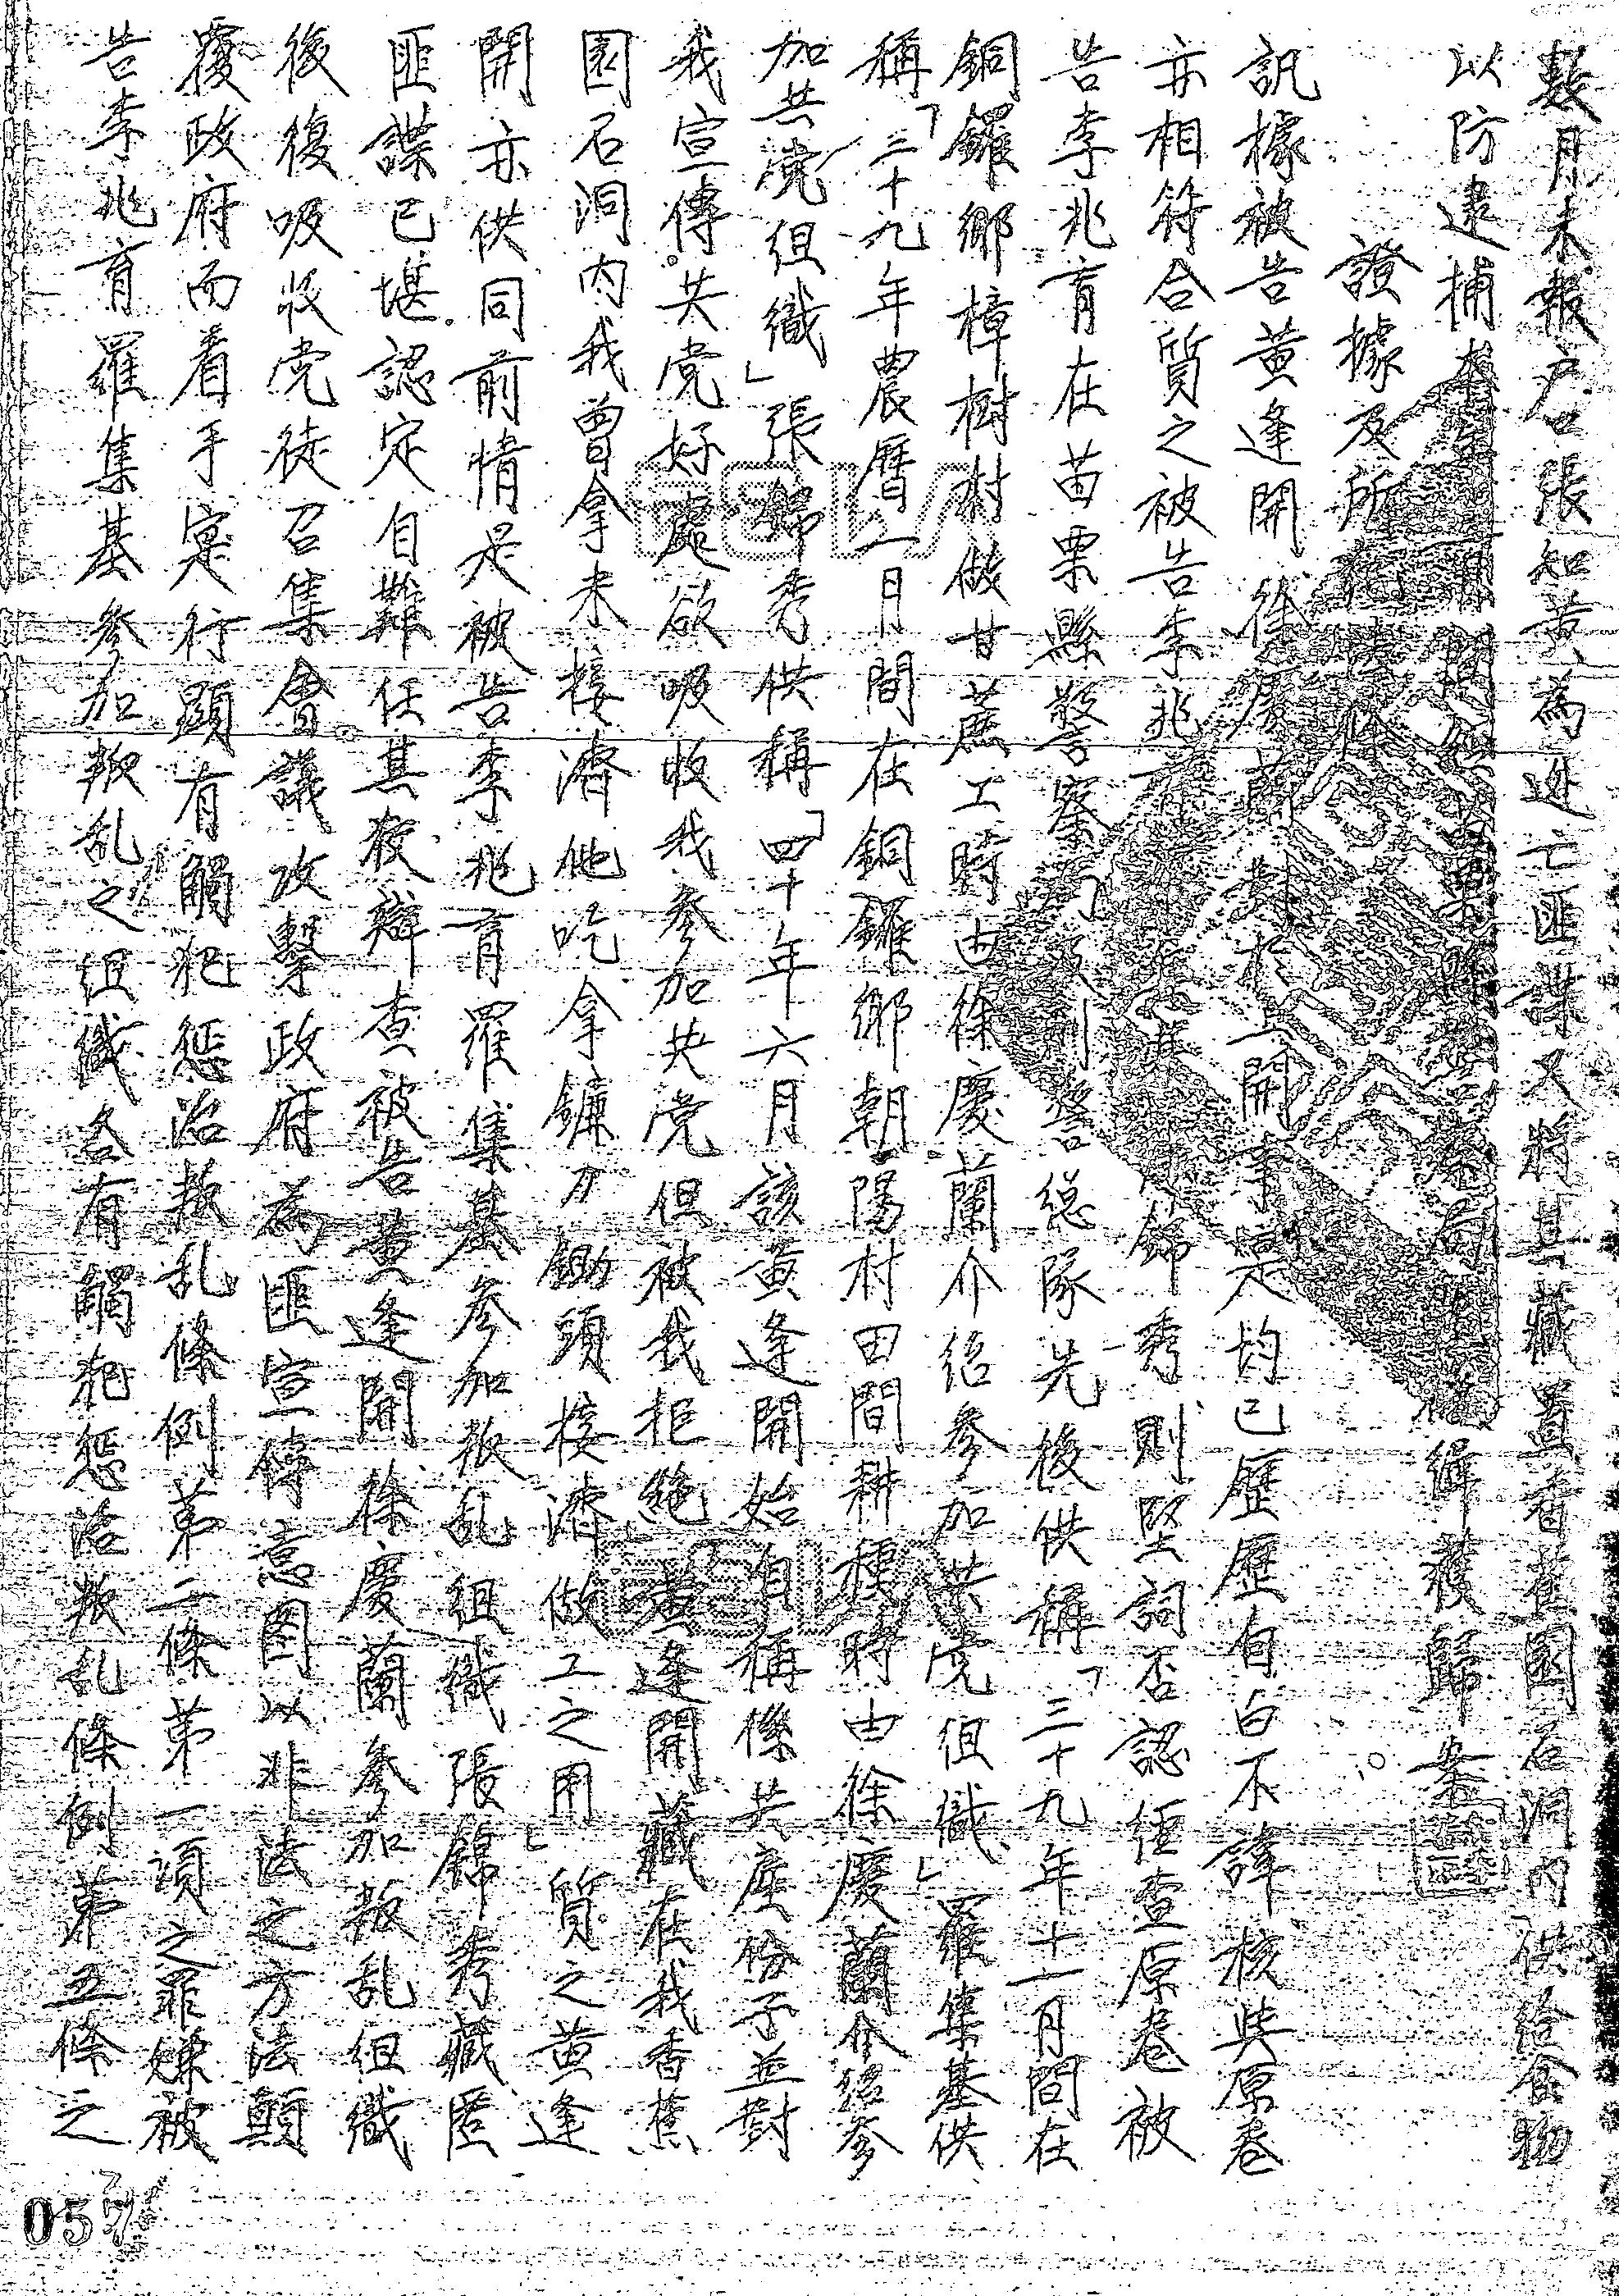 數月未報戶口張知黃為逃亡匪諜又將其藏置香蕉園石洞內供給食物
以防逮捕本案經苗栗縣警察局緝獲歸案
證據及所犯法條
訊據被告黃逢開徐慶蘭對於上開事實均已歷歷自白不諱核與原卷
亦相符合質之被告李兆育羅集基張錦秀則堅詞否認經查原卷被
告李兆育在苗栗縣警察局刑警總隊先後供稱「三十九年十一月間在
銅鑼鄉樟樹村做甘蔗工時由徐慶蘭介紹參加共党組織」羅集基供
稱「三十九年農曆一月間在銅鑼鄉朝陽村田間耕種時由徐慶蘭介紹參
加共党組織」張錦秀供稱「四十年六月該黃逢開始自稱係共產份子並對
我宣傳共党好處欲吸收我參加共党但被我拒絕黃逢開藏在我香蕉
園石洞內我曾拿米接濟他吃拿鐮刀鋤頭接濟做工之用」質之黃逢
開亦供同前情是被告李兆育羅集基參加叛乱組織張錦秀藏匿
匪諜已堪認定自難任其狡辯查被告黃逢開徐慶蘭參加叛乱組織
後復吸收党徒召集會議攻擊政府為匪宣傳意图以非法之方法顛
覆政府而着手实行顯有觸犯懲治叛乱條例第二條第一項之罪嫌被
告李兆育羅集基參加叛乱之組織各有觸犯懲治叛乱條例第五條之
057